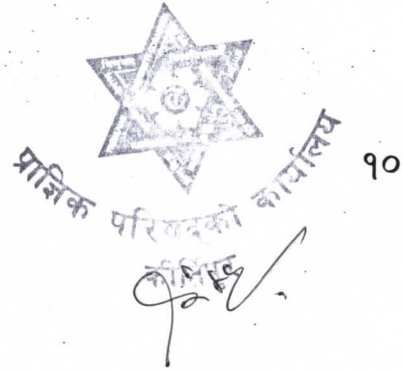 प्राज्ञिक परिषद्को कार्यालय
कीर्तिपुर
१०